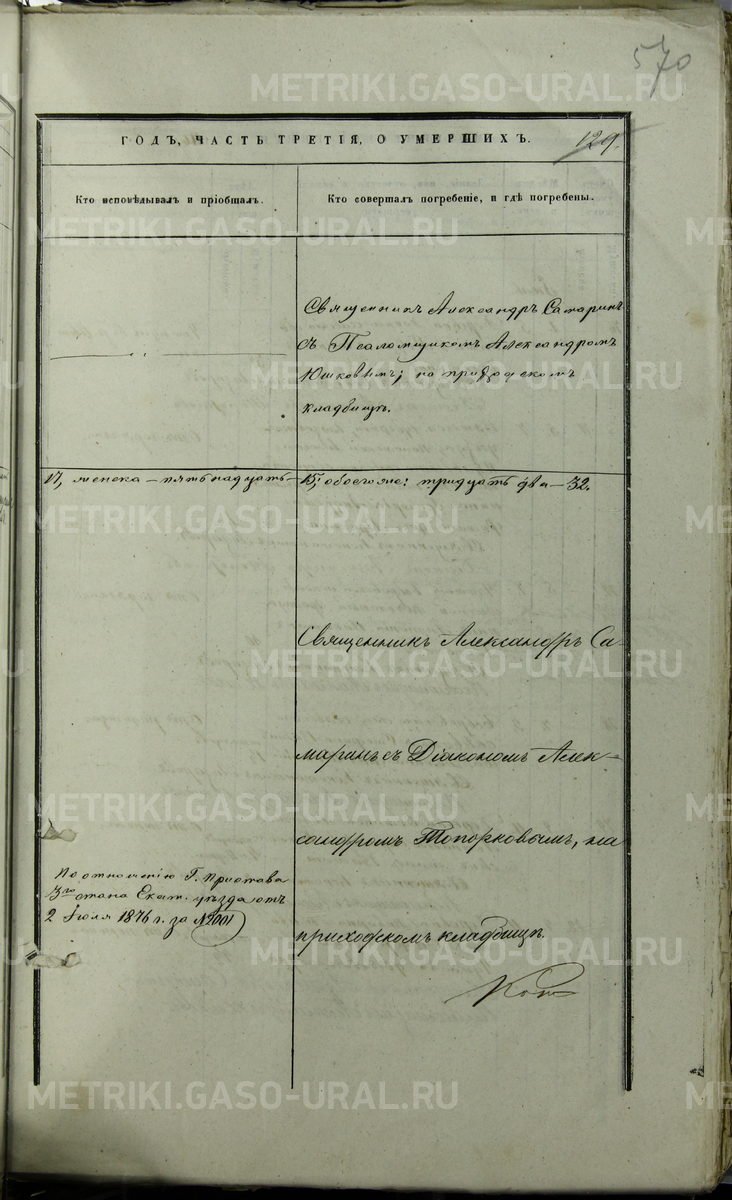 570
ГОДЪ, ЧАСТЬ ТРЕТІЯ, О УМЕРШИХЪ.
129.
Кто исповѣдывалъ и пріобщалъ.
Кто совершалъ погребеніе, и гдѣ погребены.
Священникъ Александръ Самаринъ
съ Псаломщикомъ Александромъ
Юшковымъ; на приходскомъ
кладбищѣ.
17, женска – пятьнадцать – 15; обоего же: тридцать два – 32.
Священникъ Александръ Са-
маринъ съ Діакономъ Алек-
сандромъ Топорковымъ, на
приходскомъ кладбищѣ.
По отношенію Г. Пристава
3го стана Екат. уѣзда отъ
2 Іюля 1876 г. за №
METRIKI.GASO-URAL.RU